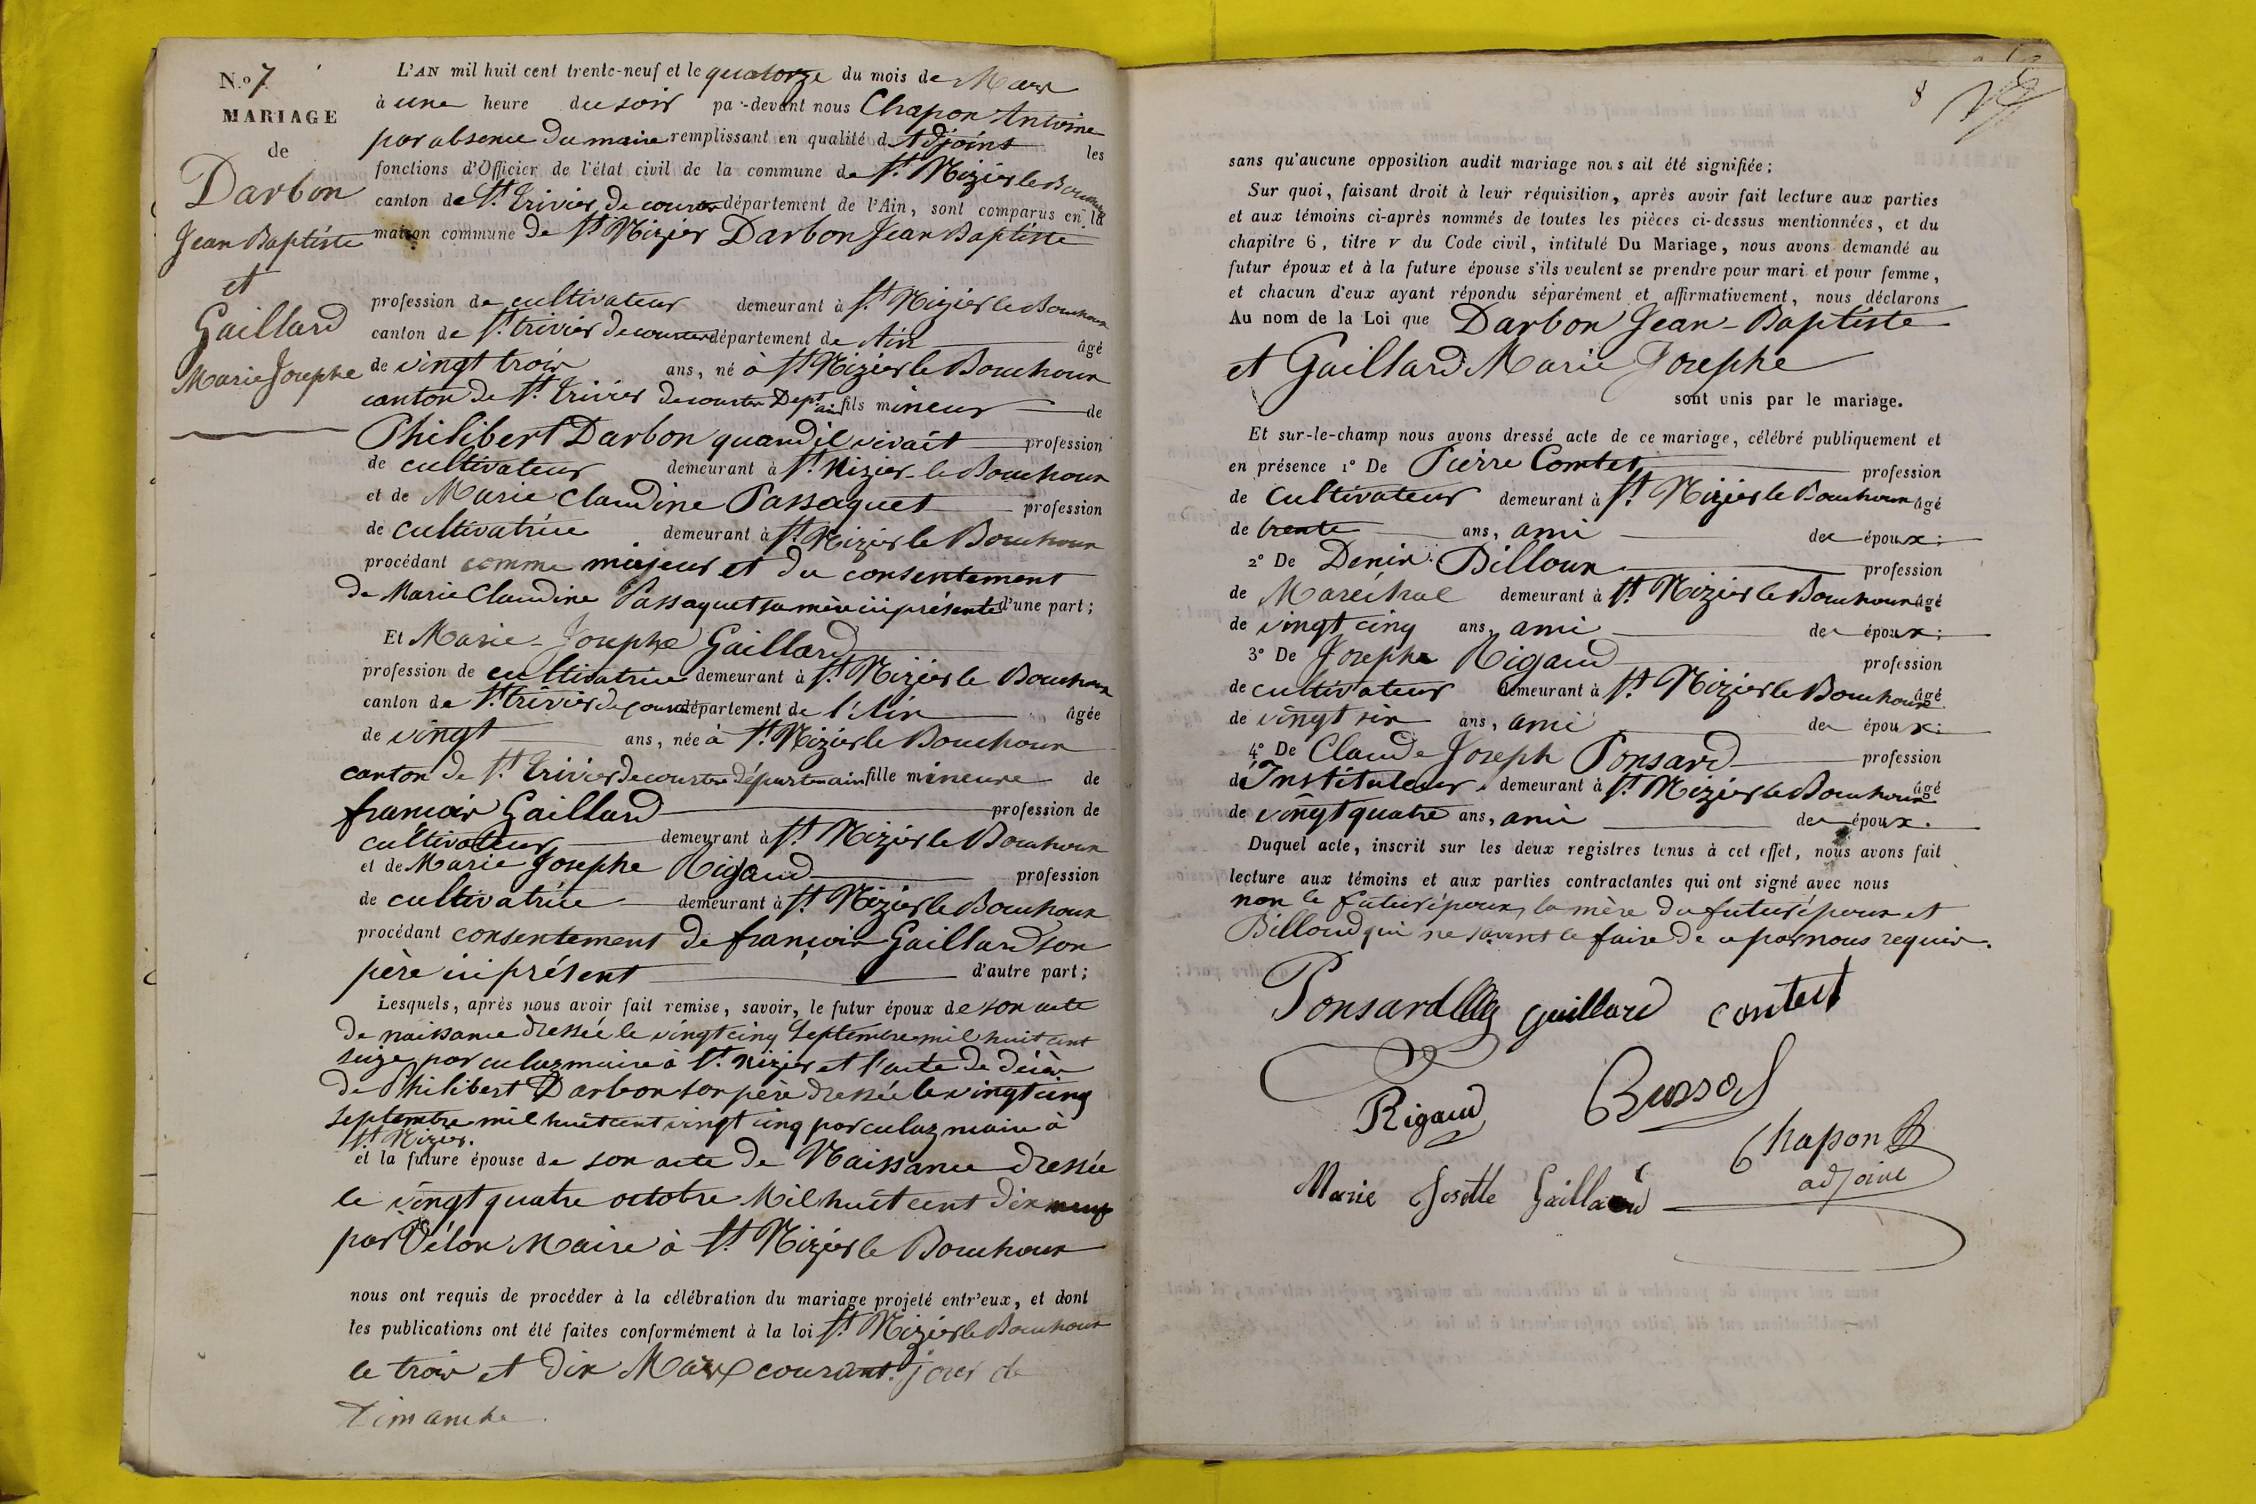 N.o 7
MARIAGE
de
Darbon
Jean Baptiste
et
Gaillard
Marie Josephe
L'AN mil huit cent trente-neuf et le quatorze du mois de Mars
à une heure du soir pa -devant nous Chapon Antoine
par absence du maire remplissant en qualité d Adjoint les
fonctions d'Officier de l'état civil de la commune de St. Nizier le Bouchoux
canton de St. Trivier de courtes département de l'Ain, sont comparus en la
maison commune de St Nizier Darbon Jean Baptiste
profession de cultivateur demeurant à St. Nizier le Bouchoux
canton de St. trivier de courtes département de Ain âgé
de vingt trois ans, né à St Nizier le Bouchoux
canton de St. Trivier de courtes Dept. ain fils mineur de
Philibert Darbon quand il vivait profession
de cultivateur demeurant à St. Nizier le Bouchoux
et de Marie Claudine Passaquet profession
de cultivatrice demeurant à St. Nizier le Bouchoux
procédant comme majeur et du consentement
de Marie Claudine Passaquet sa mère ici présente d'une part;
Et Marie-Josephe Gaillard
profession de cultivatrice demeurant à St. Nizier le Bouchoux
canton de St. trivier de courtes département de l'Ain âgée
de vingt ans, née à St. Nizier le Bouchoux
canton de St. Trivier de courtes départem ain fille mineure de
françois Gaillard profession de
cultivateur demeurant à St. Nizier le Bouchoux
et de Marie Josephe Rigaud profession
de cultivatrice demeurant à St. Nizier le Bouchoux
procédant consentement de françois Gaillard son
père ici présent d'autre part;
Lesquels, après nous avoir fait remise, savoir, le futur époux de son acte
de naissance dressée le vingt cinq Septembre mil huit cent
seize par culaz maire à St. Nizier et l'acte de décès
de Philibert Darbon son père dressée le vingt cinq
septembre mil huit cent vingt cinq par culaz maire à
St. Nizier.
et la future épouse de son acte de Naissance dressée
le vingt quatre octobre Mil huit cent dix neuf
par Vélon Maire à St. Nizier le Bouchoux
nous ont requis de procéder à la célébration du mariage projeté entr'eux, et dont
les publications ont été faites conformément à la loi St. Nizier le Bouchoux
le trois et dix Mars courant. jour de
Dimanche
8
sans qu'aucune opposition audit mariage nous ait été signifiée;
Sur quoi, faisant droit à leur réquisition, après avoir fait lecture aux parties
et aux témoins ci-après nommés de toutes les pièces ci-dessus mentionnées, et du
chapitre 6, titre v du Code civil, intitulé Du Mariage, nous avons demandé au
futur époux et à la future épouse s'ils veulent se prendre pour mari et pour femme,
et chacun d'eux ayant répondu séparément et affirmativement, nous déclarons
Au nom de la Loi que Darbon Jean-Baptiste
et Gaillard Marie Josephe
sont unis par le mariage.
Et sur-le-champ nous avons dressé acte de ce mariage, célébré publiquement et
en présence 1° De Pierre Comtet profession
de Cultivateur demeurant à St. Nizier le Bouchoux âgé
de trente ans, ami des époux;
2° De Denis Billoux profession
de Maréchal demeurant à St. Nizier le Bouchoux âgé
de vingt cinq ans, ami des époux;
3° De Josephe Rigaud profession
de cultivateur demeurant à St. Nizier le Bouchoux âgé
de vingt six ans, ami des époux;
4° De Claude Joseph Ponsard profession
d'Instituteur demeurant à St. Nizier le Bouchoux âgé
de vingt quatre ans, ami des époux.
Duquel acte, inscrit sur les deux registres tenus à cet effet, nous avons fait
lecture aux témoins et aux parties contractantes qui ont signé avec nous
non le futur époux, la mère du futur époux et
Billoud qui ne savent le faire de ce par nous requis.
Ponsard guillard contest
Rigaud Bussod
Chapon
adjoint
Marie Josette Gaillard